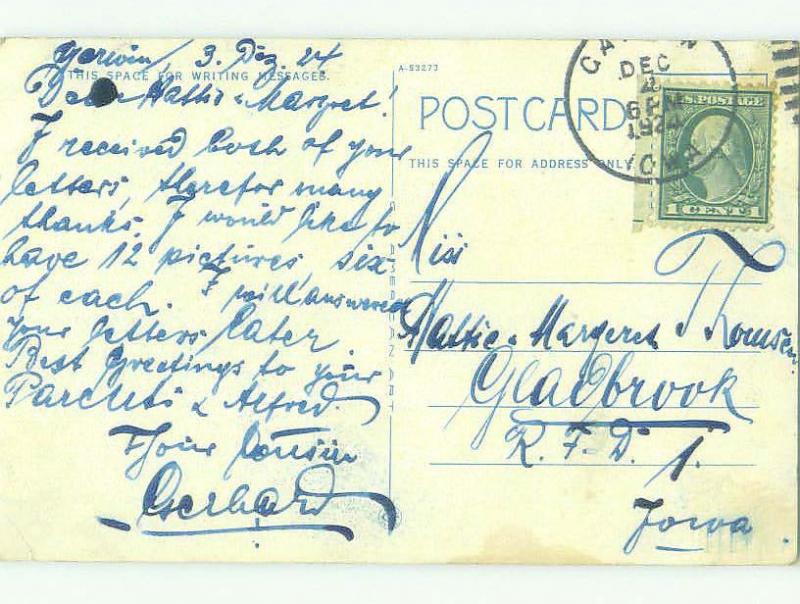 3. Dez. 24
THIS SPACE FOR WRITING MESSAGES.
Dear Hattie & Margret!
I received both of your
letters, therefor many
thanks. I would like to
have 12 pictures, six
of each. I will answered
your letters later.
Best greetings to your
& Alfred.
Your Cousin
Gerhard
A-53273
POST CARD
THIS SPACE FOR ADDRESS ONLY
DEC
4
6 PM
1924
IOWA
U.S. POSTAGE
1 CENT 1
AMERICAN ART
Miss
Hattie & Margeret Thomsen
Gladbrook
R. F. D. 1.
Iowa